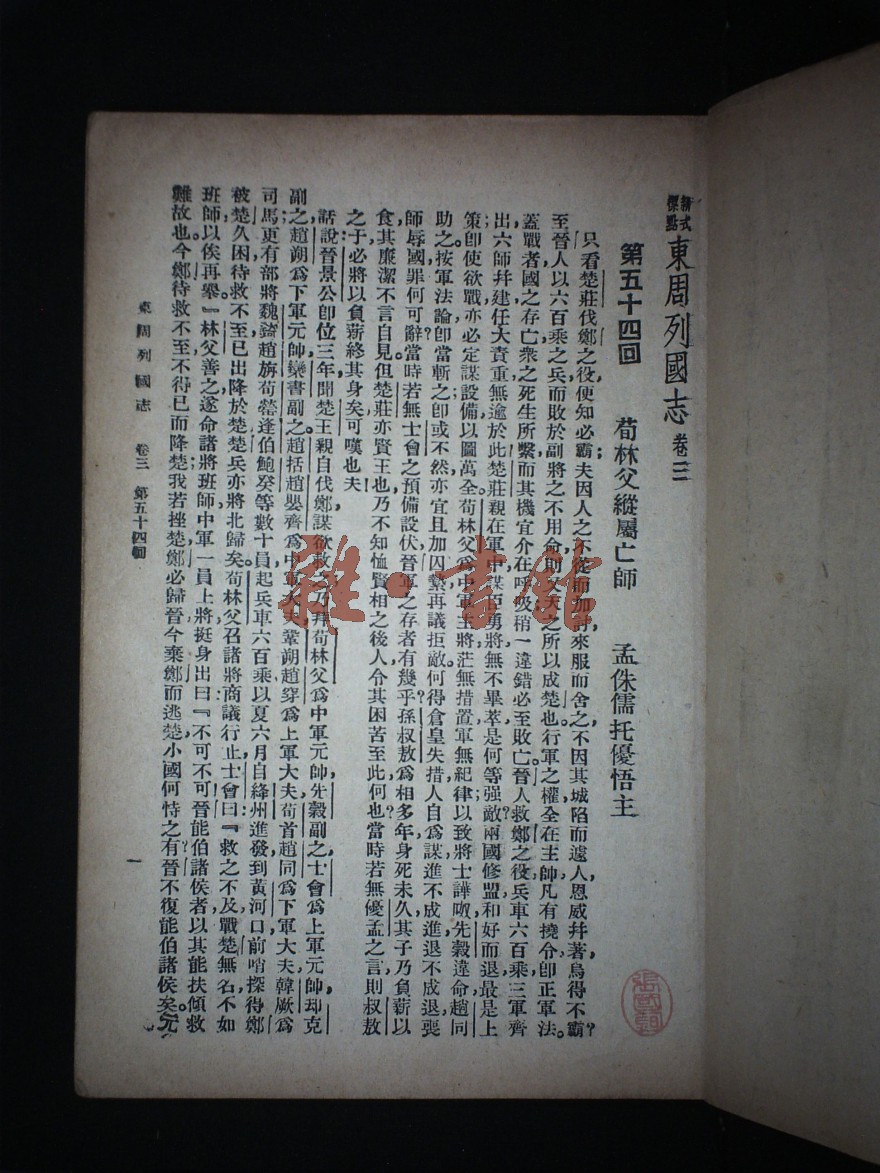 新式標點 東周列國志 卷三
第五十四回 荀林父縱屬亡師 孟侏儒托優悟主
只看楚莊伐鄭之役，便知必霸；夫因人之不從而加討，來服而舍之，不因其城陷而遽人，恩威幷著，烏得不霸？
至晉人以六百乘之兵，而敗於副將之不用命，則又天之所以成楚也。行軍之權，全在主帥，凡有撓令，卽正軍法。
蓋戰者國之存亡，衆之死生所繫，而其機宜介在呼吸，稍一違錯，必至敗亡。晉人救鄭之役，兵車六百乘，三軍齊
出，六師幷建，任大責重，無逾於此；楚莊親在軍中，謀臣勇將，無不畢萃，是何等强敵？兩國修盟和好而退，最是上
策；卽使欲戰，亦必定謀設備，以圖萬全。荀林父爲中軍主將，茫無措置，軍無紀律，以致將士譁呶，先縠違命，趙同
助之。按軍法論，卽當斬之；卽或不然，亦宜且加囚繫，再議拒敵。何得倉皇失措，人自爲謀，進不成進，退不成退，喪
師辱國，罪何可辭？當時若無士會之預備設伏，晉軍之存者有幾乎？孫叔敖爲相多年，身死未久，其子乃負薪以
食，其廉潔不言自見。但楚莊亦賢王也，乃不知恤賢相之後人，令其困苦至此，何也？當時若無優孟之言，則叔敖
之子，必將以負薪終其身矣，可嘆也夫！
話說晉景公卽位三年，聞楚王親自伐鄭，謀欲救之，乃拜荀林父爲中軍元帥，先縠副之；士會爲上軍元帥，却克
副之；趙朔爲下軍元帥，欒書副之。趙括趙嬰齊爲中軍大夫，鞏朔趙穿爲上軍大夫，荀首趙同爲下軍大夫，韓厥爲
司馬；更有部將魏錡趙旃荀罃逢伯鮑癸等數十員，起兵車六百乘，以夏六月自絳州進發。到黃河口，前哨探得鄭
被楚久困，待救不至，已出降於楚，楚兵亦將北歸矣。荀林父召諸將商議行止，士會曰：『救之不及，戰楚無名，不如
班師以俟再擧。』林父善之，遂命諸將班師。中軍一員上將，挺身出曰：『不可不可！晉能伯諸侯者，以其能扶傾救
難故也。今鄭待救不至，不得已而降楚，我若挫楚，鄭必歸晉；今棄鄭而逃楚，小國何恃之有？晉不復能伯諸侯矣，元
東周列國志 卷三 第五十四回
一
雅·書館